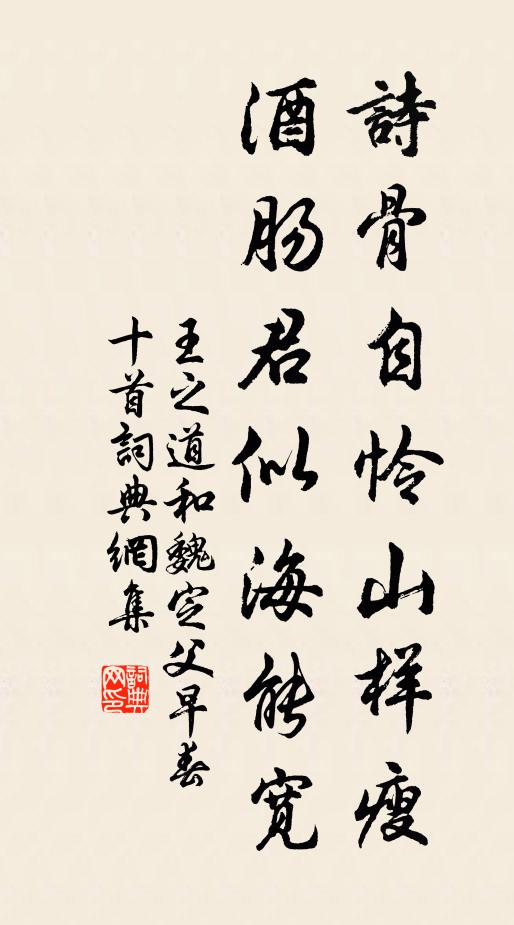 詩骨自怜山样瘦
酒肠君似海能寬
王之道和魏定父早春
十首詞典網集
詞典
网印